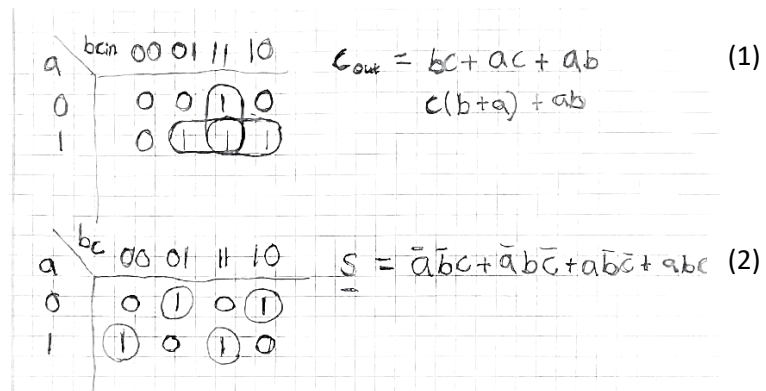 a \ bcin 00 01 11 10
0 0 0 1 0
1 0 1 1 1
Cout = bc + ac + ab (1)
c(b+a) + ab
a \ bc 00 01 11 10
0 0 1 0 1
1 1 0 1 0
S = a̅b̅c + a̅bc̅ + ab̅c̅ + abc (2)